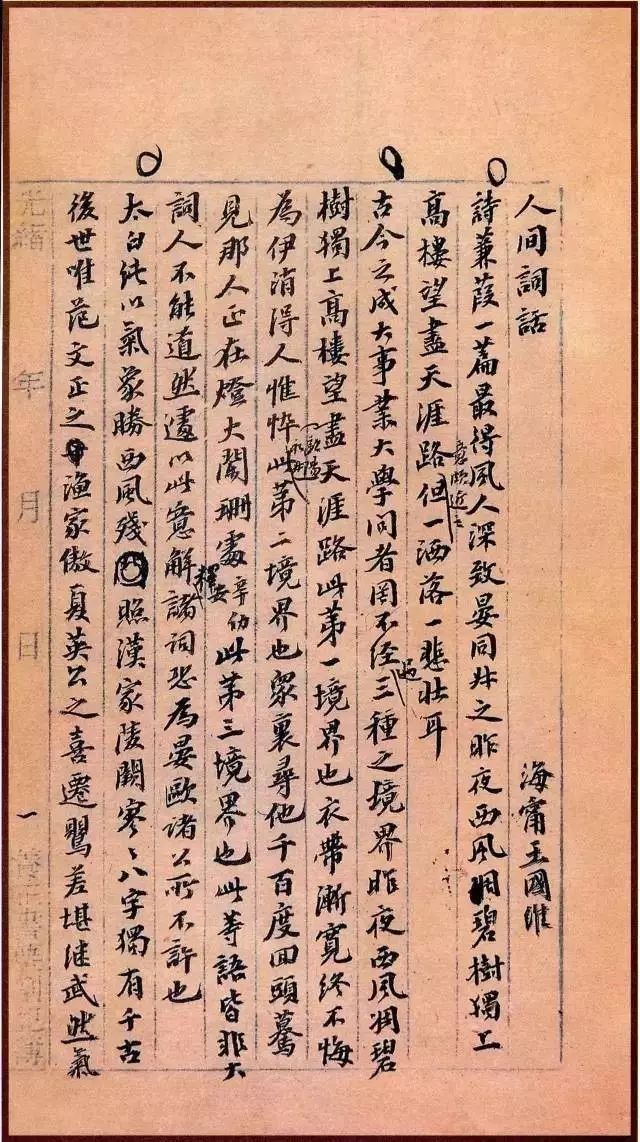 人间詞話 海甯王國維
詩蒹葭一篇最得風人深致晏同叔之昨夜西風凋碧樹獨上
高樓望盡天涯路意頗近之但一洒落一悲壯耳
古今之成大事業大學問者罔不經過三種之境界昨夜西風凋碧
樹獨上高樓望盡天涯路此第一境界也衣帶漸寬終不悔
為伊消得人憔悴歐陽永叔此第二境界也衆裏尋他千百度回頭驀
見那人正在燈火闌珊處辛幼安此第三境界也此等語皆非大
詞人不能道然遽以此意解釋諸詞恐為晏歐諸公所不許也
太白純以氣象勝西風殘照漢家陵闕寥〻八字獨有千古
後世唯范文正之漁家傲夏英公之喜遷鶯差堪继武然氣
光緒 年 月 日 一